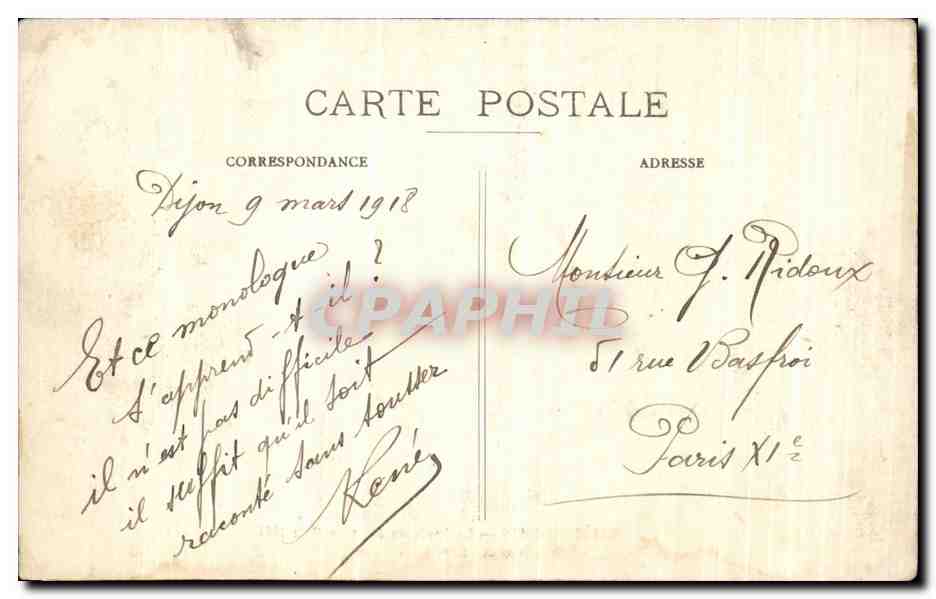 CARTE POSTALE
CORRESPONDANCE
Dijon 9 mars 1918
Et ce monologue
s'apprend-t il ?
il n'est pas difficile
il suffit qu'il soit
raconté sans tousser
René
ADRESSE
Monsieur J. Ridoux
51 rue Basfroi
Paris XIe
CPAPHIL